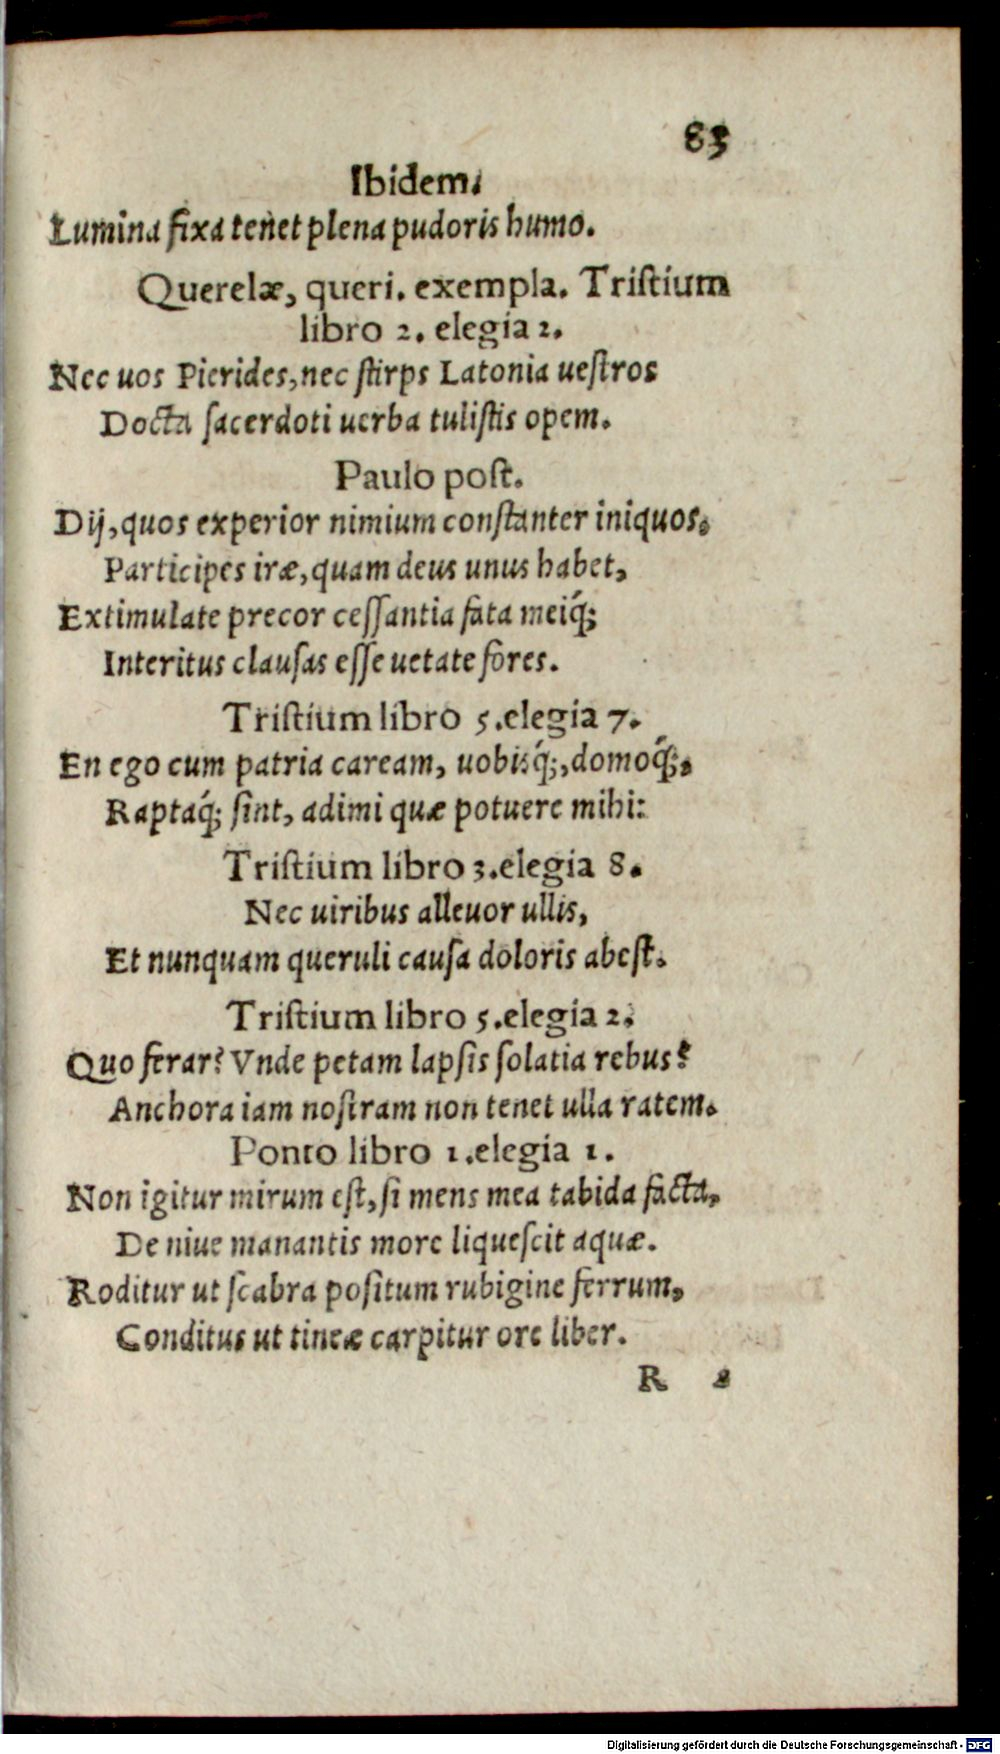 83
Ibidem.
Lumina fixa tenet plena pudoris humo.
Querelæ, queri. exempla. Tristium
libro 2. elegia 2.
Nec uos Pierides, nec stirps Latonia uestros
Docta sacerdoti uerba tulistis opem.
Paulo post.
Dij, quos experior nimium constanter iniquos.
Participes iræ, quam deus unus habet,
Extimulate precor cessantia fata meiq́;
Interitus clausas esse uetate fores.
Tristium libro 5. elegia 7.
En ego cum patria caream, uobisq́;, domoq́;,
Raptaq́; sint, adimi quæ potuere mihi:
Tristium libro 3. elegia 8.
Nec uiribus alleuor ullis,
Et nunquam queruli causa doloris abest.
Tristium libro 5. elegia 2.
Quo ferar? Vnde petam lapsis solatia rebus?
Anchora iam nostram non tenet ulla ratem.
Ponto libro 1. elegia 1.
Non igitur mirum est, si mens mea tabida facta,
De niue manantis more liquescit aquæ.
Roditur ut scabra positum rubigine ferrum,
Conditus ut tineæ carpitur ore liber.
R
Digitalisierung gefördert durch die Deutsche Forschungsgemeinschaft - DFG